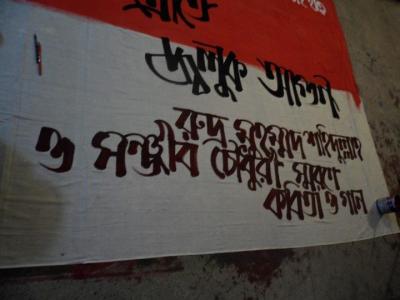 জ্বলুক আগুন
রুদ্র মুহম্মদ শহিদুল্লাহ
ও সঞ্জীব চৌধুরী স্মরণে
কবিতা ও গান